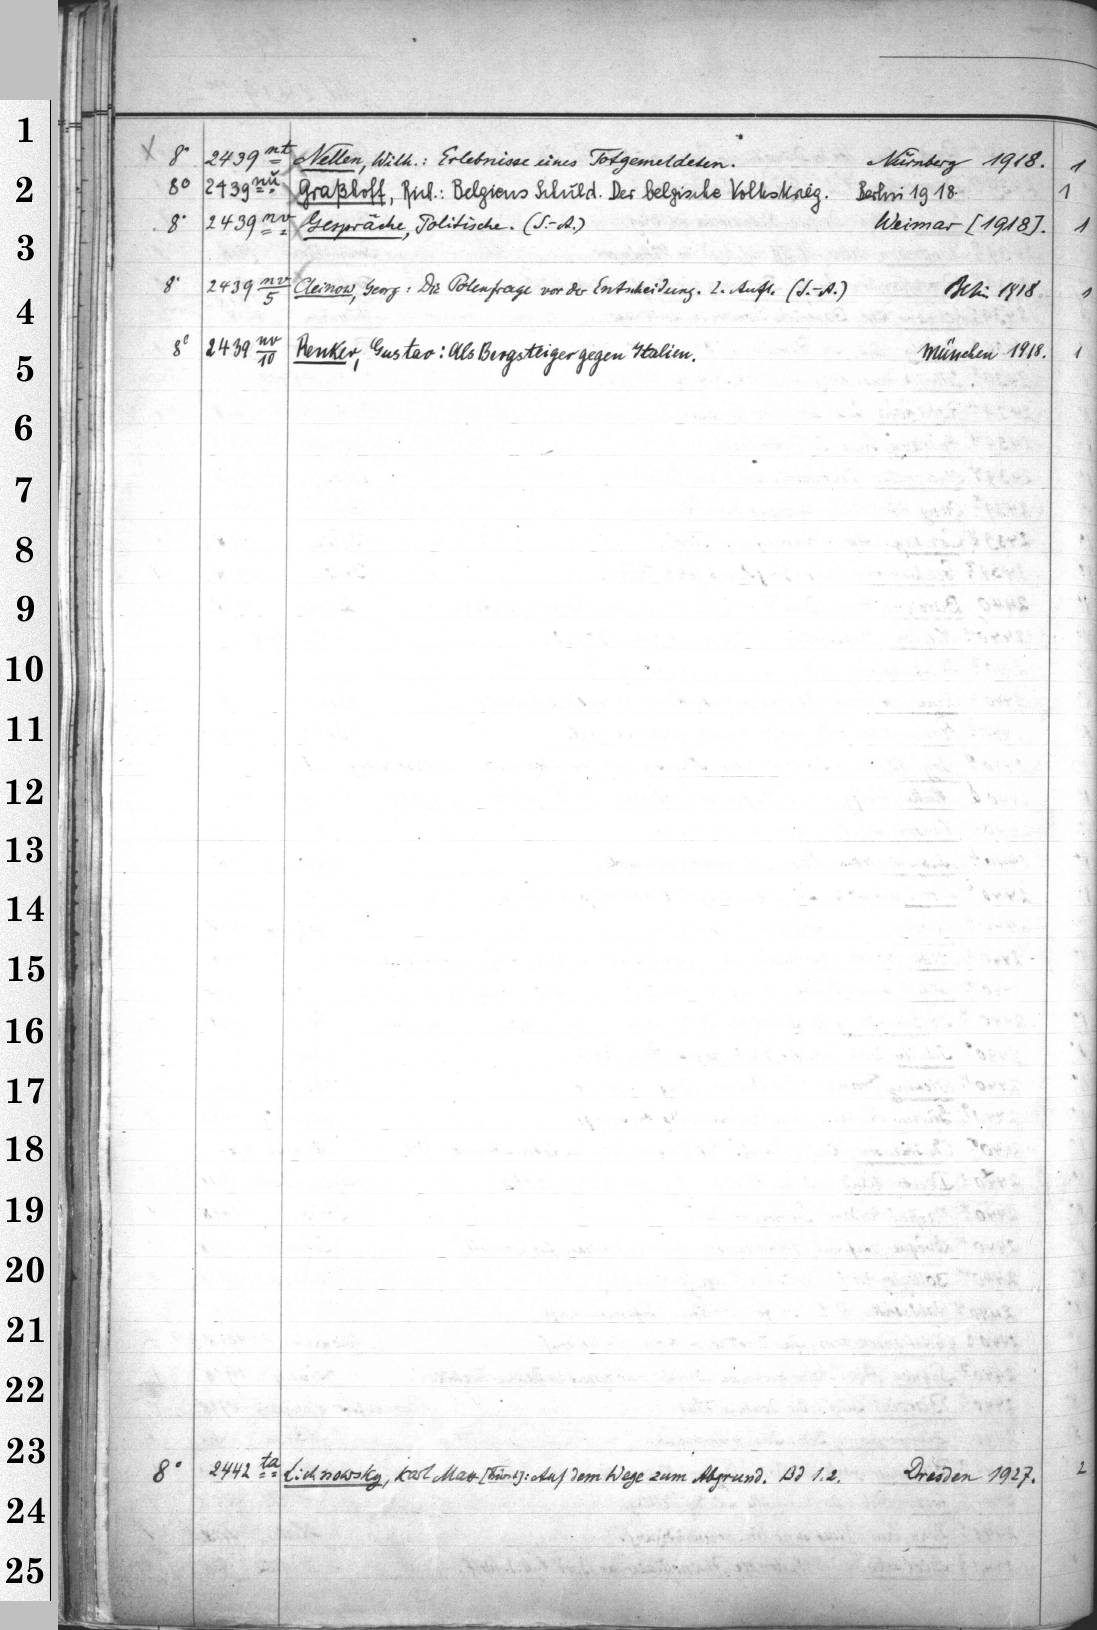 1
2
3
4
5
6
7
8
9
10
11
12
13
14
15
16
17
18
19
20
21
22
23
24
25
8° 2439 nt Nellen, Wilh.: Erlebnisse eines Totgemeldeten. Nürnberg 1918. 1
8° 2439 nu Graßhoff, Rich.: Belgiens Schuld. Der belgische Volkskrieg. Berlin 1918. 1
8° 2439 nv Gespräche, Politische. (S.-A.) Weimar [1918]. 1
8° 2439 nv/5 Cleinow, Georg: Die Polenfrage vor der Entscheidung. 2. Aufl. (S.-A.) Berlin 1918. 1
8° 2439 nv/10 Renker, Gustav: Als Bergsteiger gegen Italien. München 1918. 1
8° 2442 ta Lichnowsky, Karl Max [Fürst]: Auf dem Wege zum Abgrund. Bd 1.2. Dresden 1927. 2